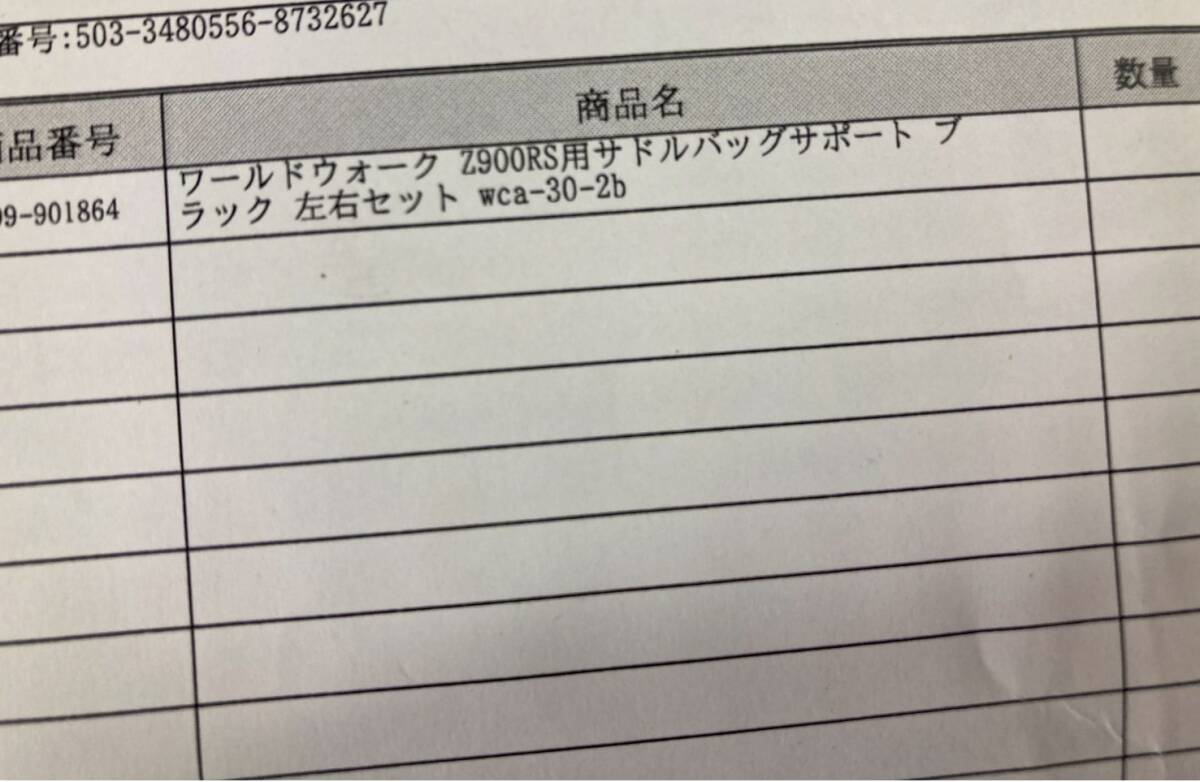 番号:503-3480556-8732627
品番号 商品名 数量
9-901864 ワールドウォーク Z900RS用サドルバッグサポート ブ
ラック 左右セット wca-30-2b